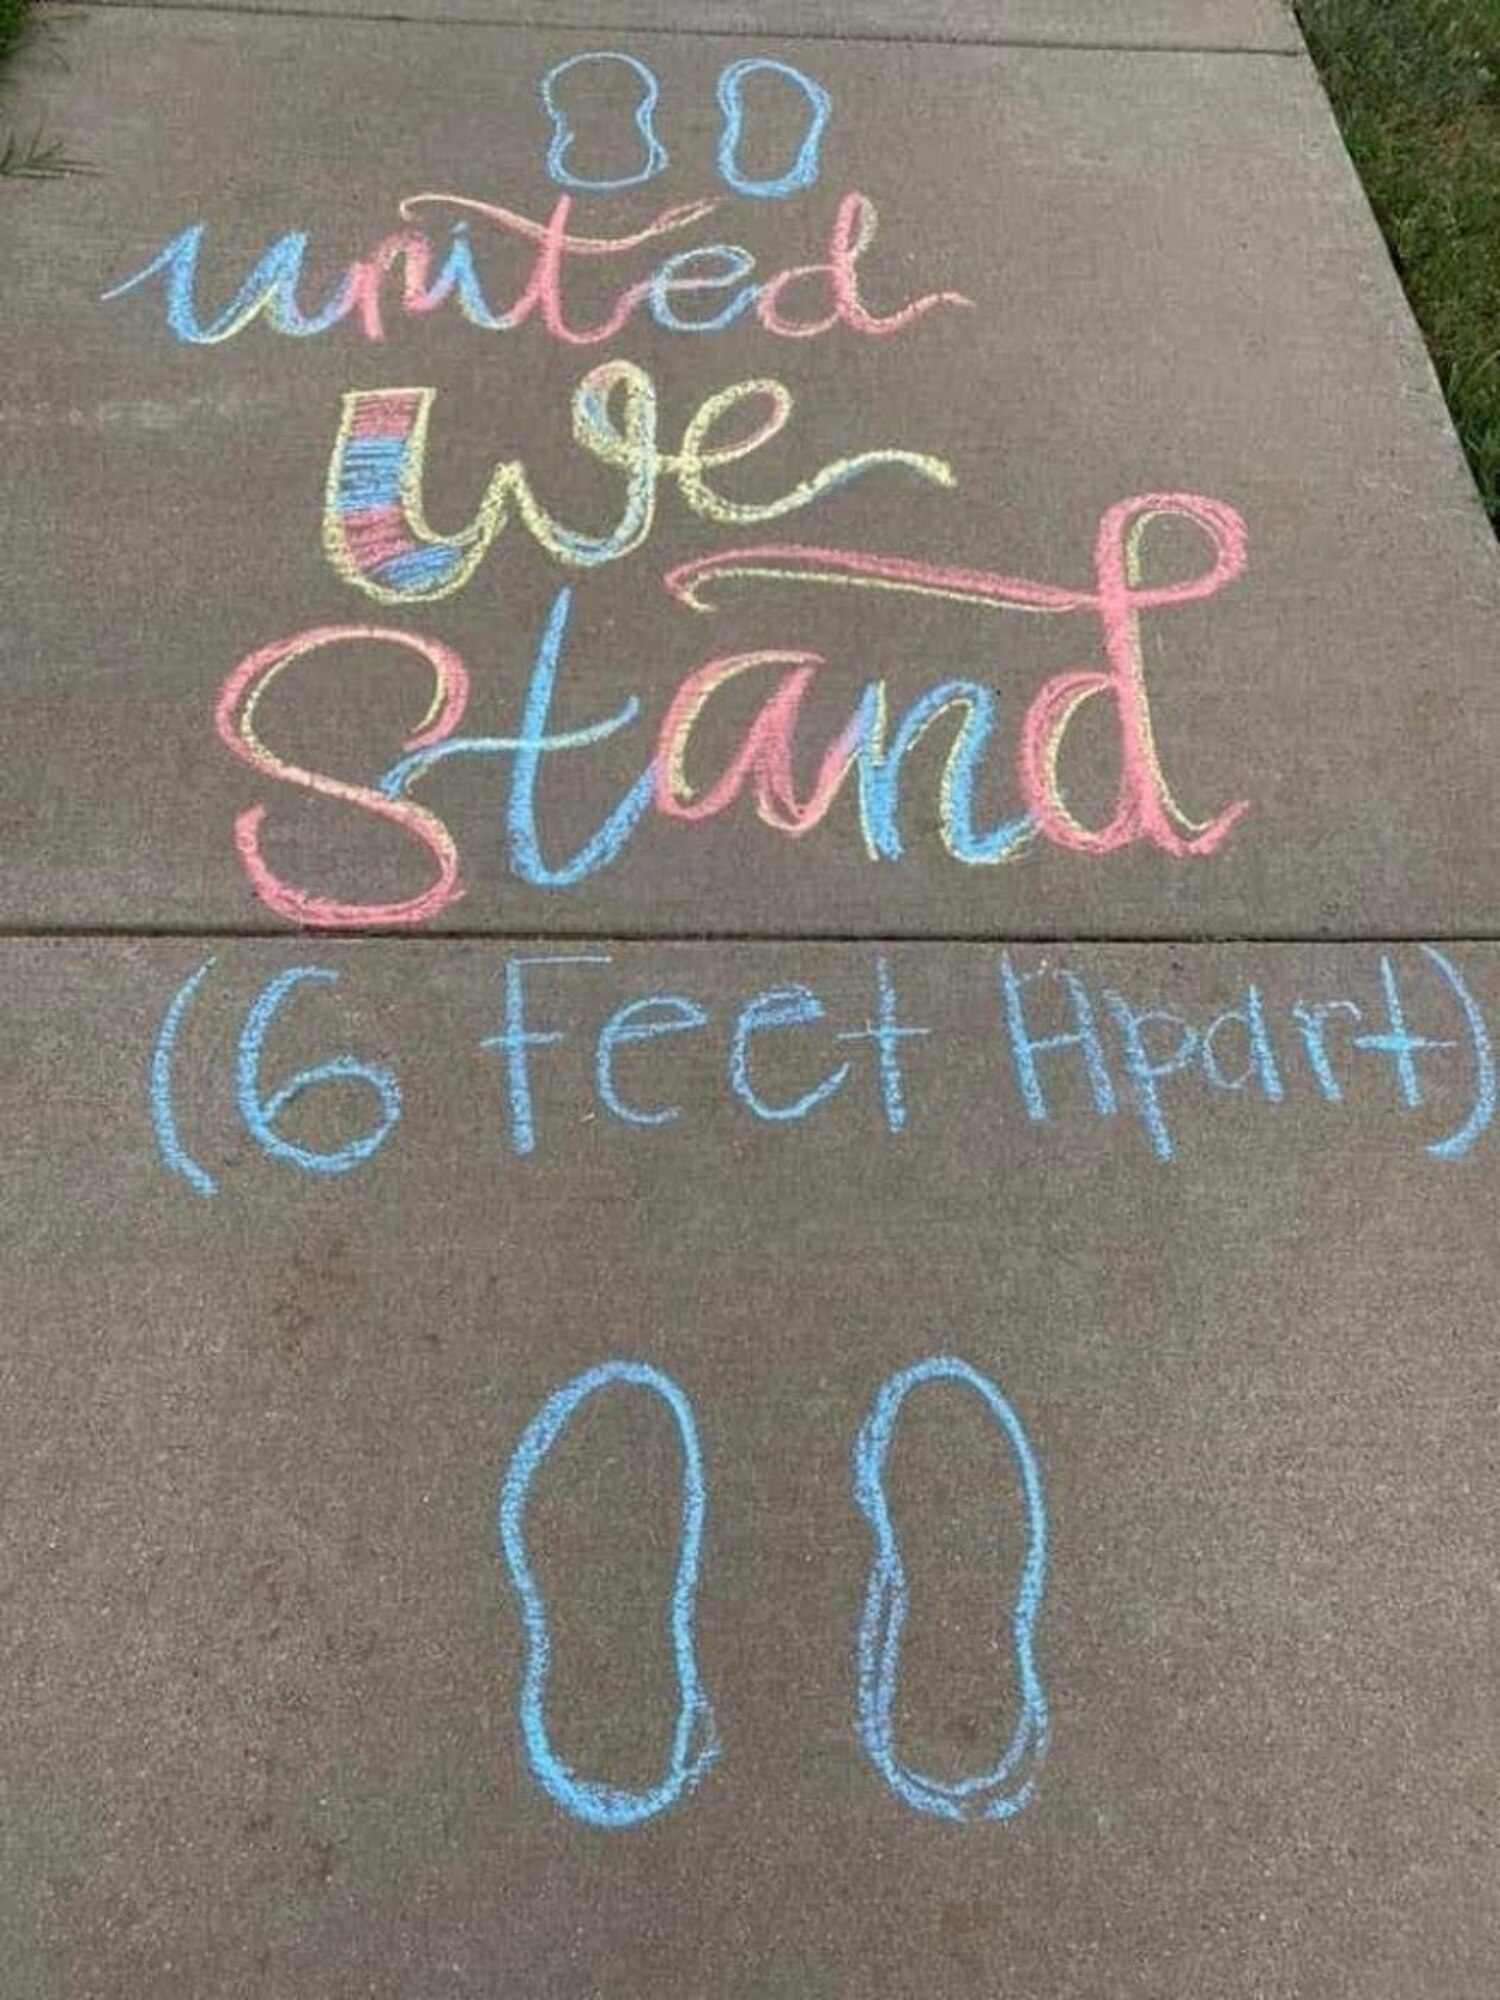 united
we
Stand
(6 Feet Apart)